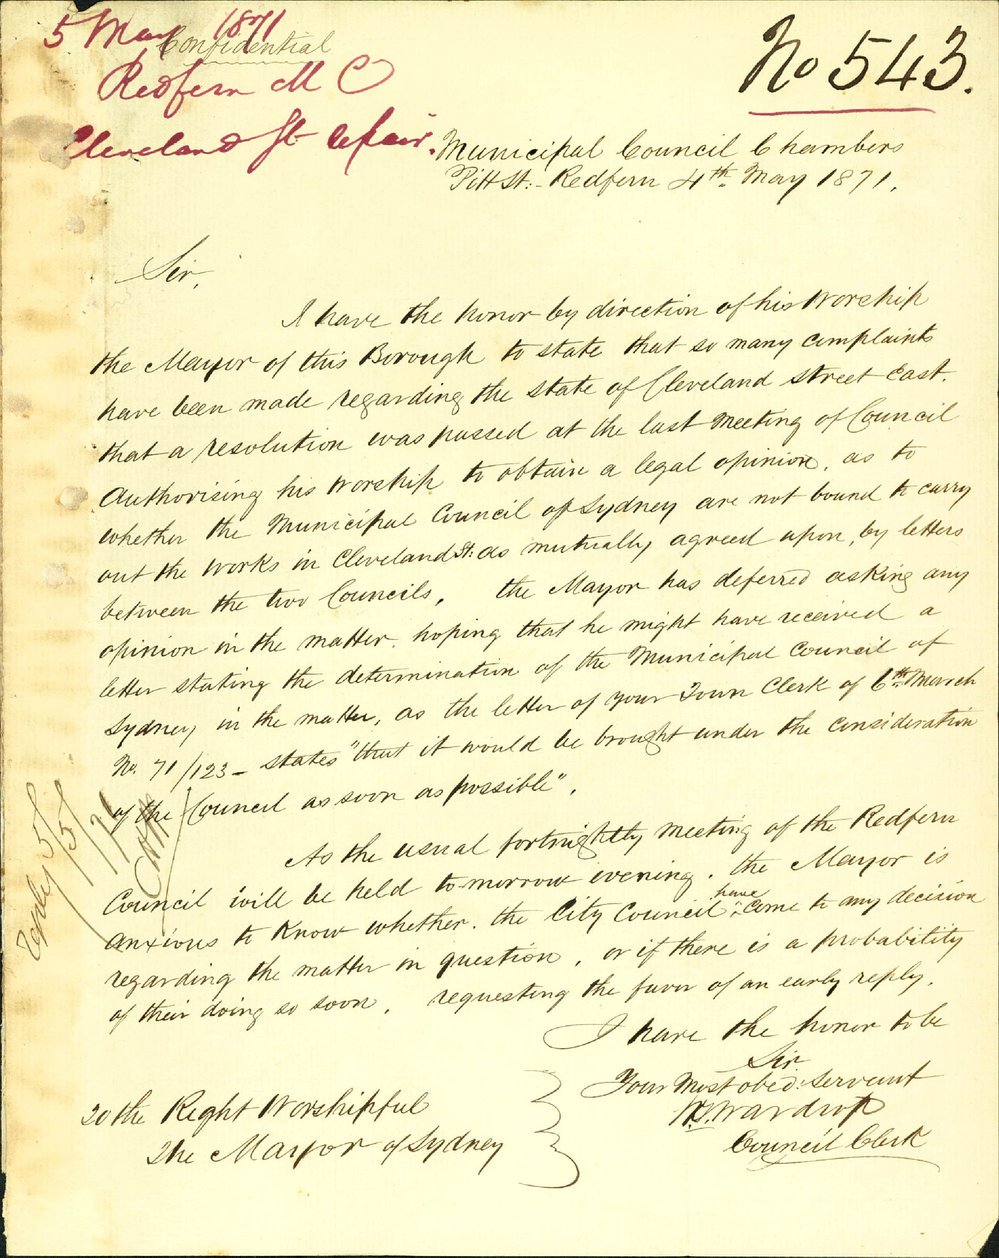 5 May 1871
Confidential
Redfern M C
Cleveland St Repair.
No 543.
Municipal Council Chambers
Pitt St:- Redfern 4th May 1871.
Sir,
I have the honor by direction of his Worship
the Mayor of this Borough to state that so many complaints
have been made regarding the state of Cleveland Street East.
that a resolution was passed at the last meeting of Council
Authorising his Worship to obtain a legal opinion, as to
whether the Municipal Council of Sydney are not bound to carry
out the Works in Cleveland St: as mutually agreed upon, by letters
between the two Councils. the Mayor has deferred asking any
opinion in the matter. hoping that he might have received a
letter stating the determination of the Municipal Council of
Sydney in the matter, as the letter of your Town Clerk of 6th March
No. 71/123 - states "that it would be brought under the consideration
of the Council as soon as possible".
As the usual fortnightly meeting of the Redfern
Council will be held to-morrow evening. the Mayor is
anxious to know whether. the City Council have come to any decision
regarding the matter in question, or if there is a probability
of their doing so soon. requesting the favor of an early reply.
I have the honor to be
Sir
Your Most obed: Servant
Wardrop
Council Clerk
To the Right Worshipful
The Mayor of Sydney
Reply 5/5/71